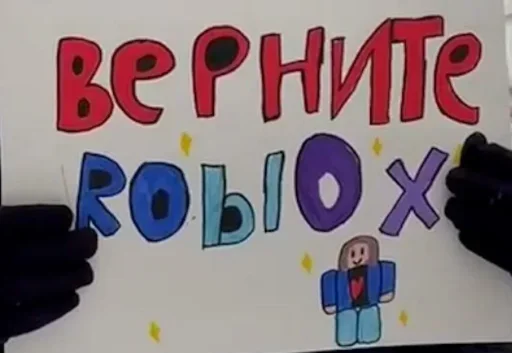 ВеРНИТе
ROblOX